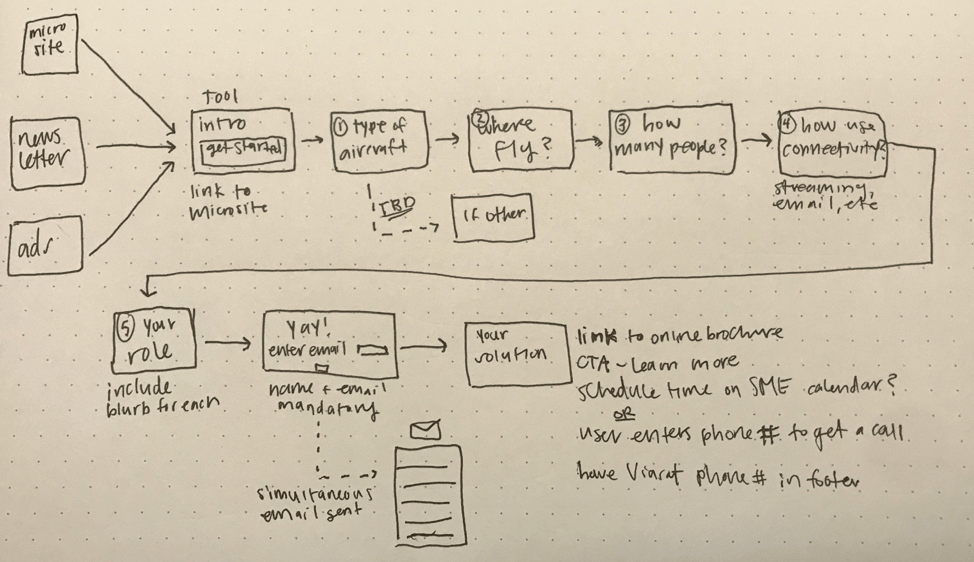 micro
site
news
letter
ads
Tool
intro
get started
link to
microsite
① type of
aircraft
TBD
if other
② where
fly?
③ how
many people?
④ how use
connectivity?
streaming,
email, etc
⑤ your
role
include
blurb for each
yay!
enter email
name + email
mandatory
simultaneous
email sent
your
solution
link to online brochure
CTA - Learn more
schedule time on SME calendar?
OR
user enters phone # to get a call
have Viasat phone # in footer